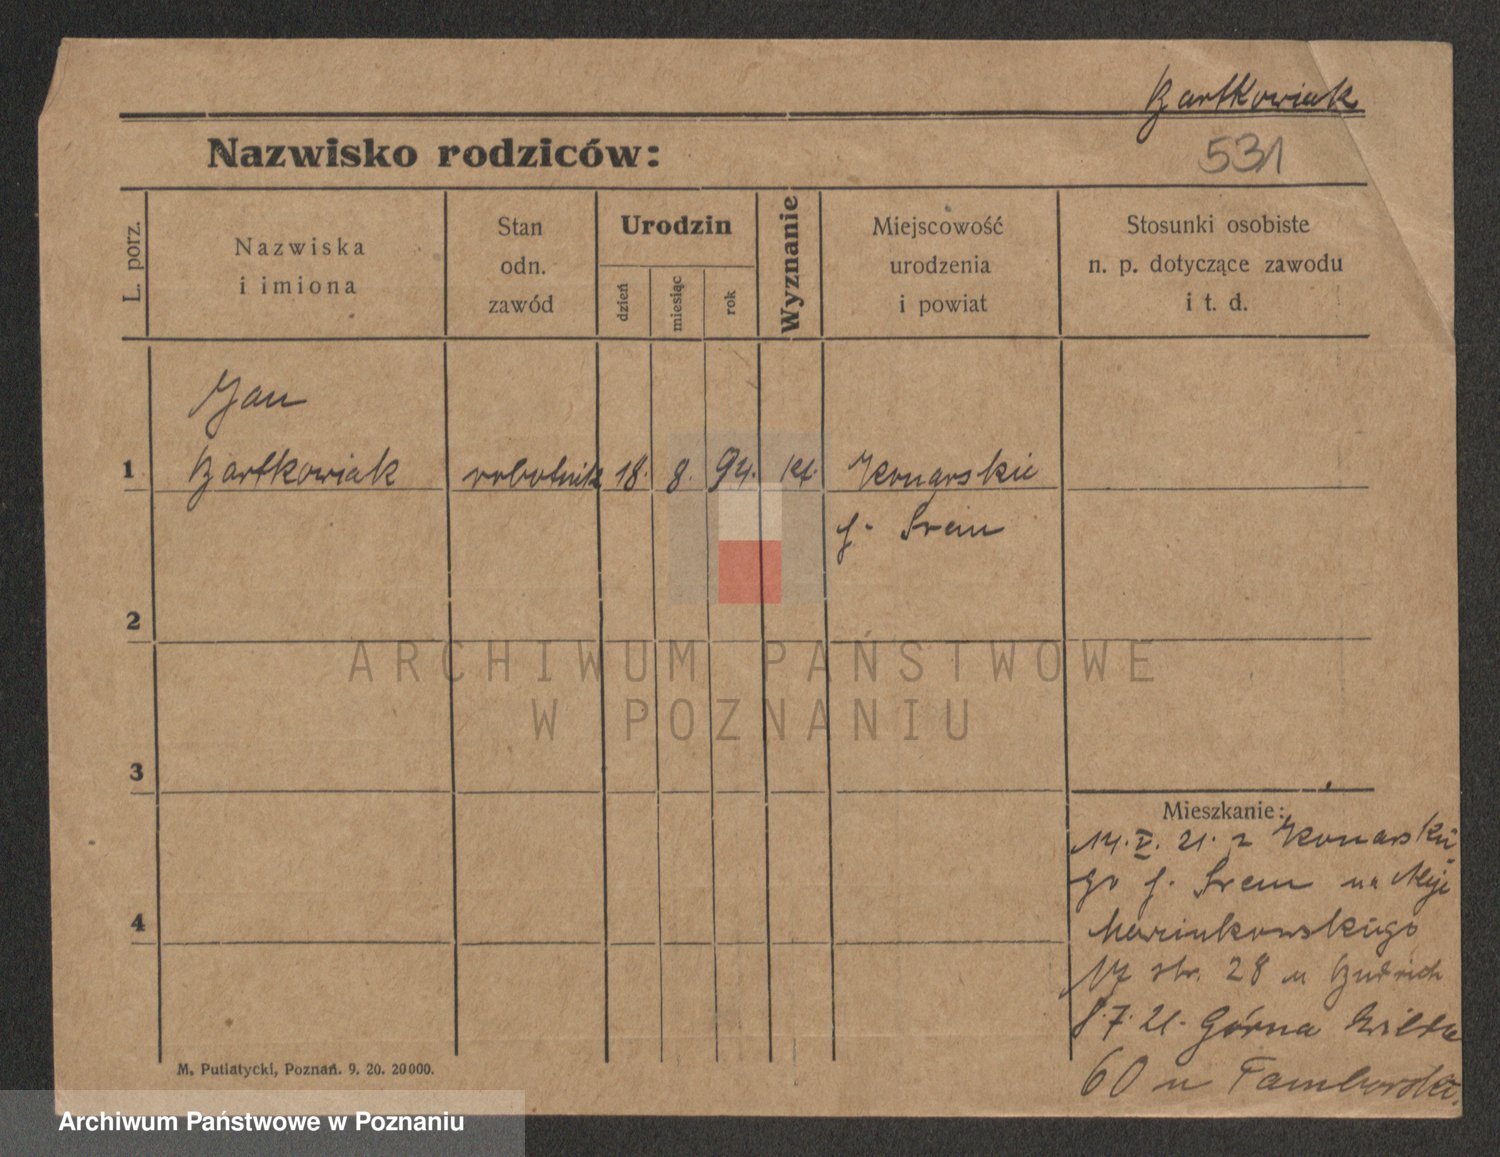 Bartkowiak
531
Nazwisko rodziców:
L. porz.
Nazwiska
i imiona
Stan
odn.
zawód
Urodzin
dzień
miesiąc
rok
Wyznanie
Miejscowość
urodzenia
i powiat
Stosunki osobiste
n. p. dotyczące zawodu
i t. d.
Jan
1 Bartkowiak robotnik 18. 8. 94. kt. Konarskie
f. Śrem
2
3
4
Mieszkanie:
14. V. 21. z Konarskie
go f. Śrem na Aleje
Marcinkowskiego
17 str. 28 u
8.7.21. Górna Wilda
60 u Tamborski.
M. Putiatycki, Poznań. 9. 20. 20000.
ARCHIWUM PAŃSTWOWE
W POZNANIU
Archiwum Państwowe w Poznaniu